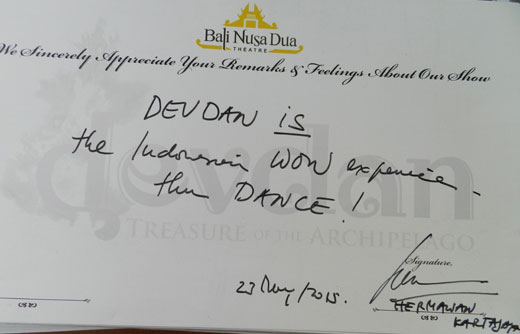 Bali Nusa Dua
THEATRE
We Sincerely Appreciate Your Remarks & Feelings About Our Show
DEVDAN is
the Indonesia WOW experience -
thru DANCE!
devdan
TREASURE OF THE ARCHIPELAGO
Signature,
23 May/2015.
HERMAWAN
KARTAJAYA